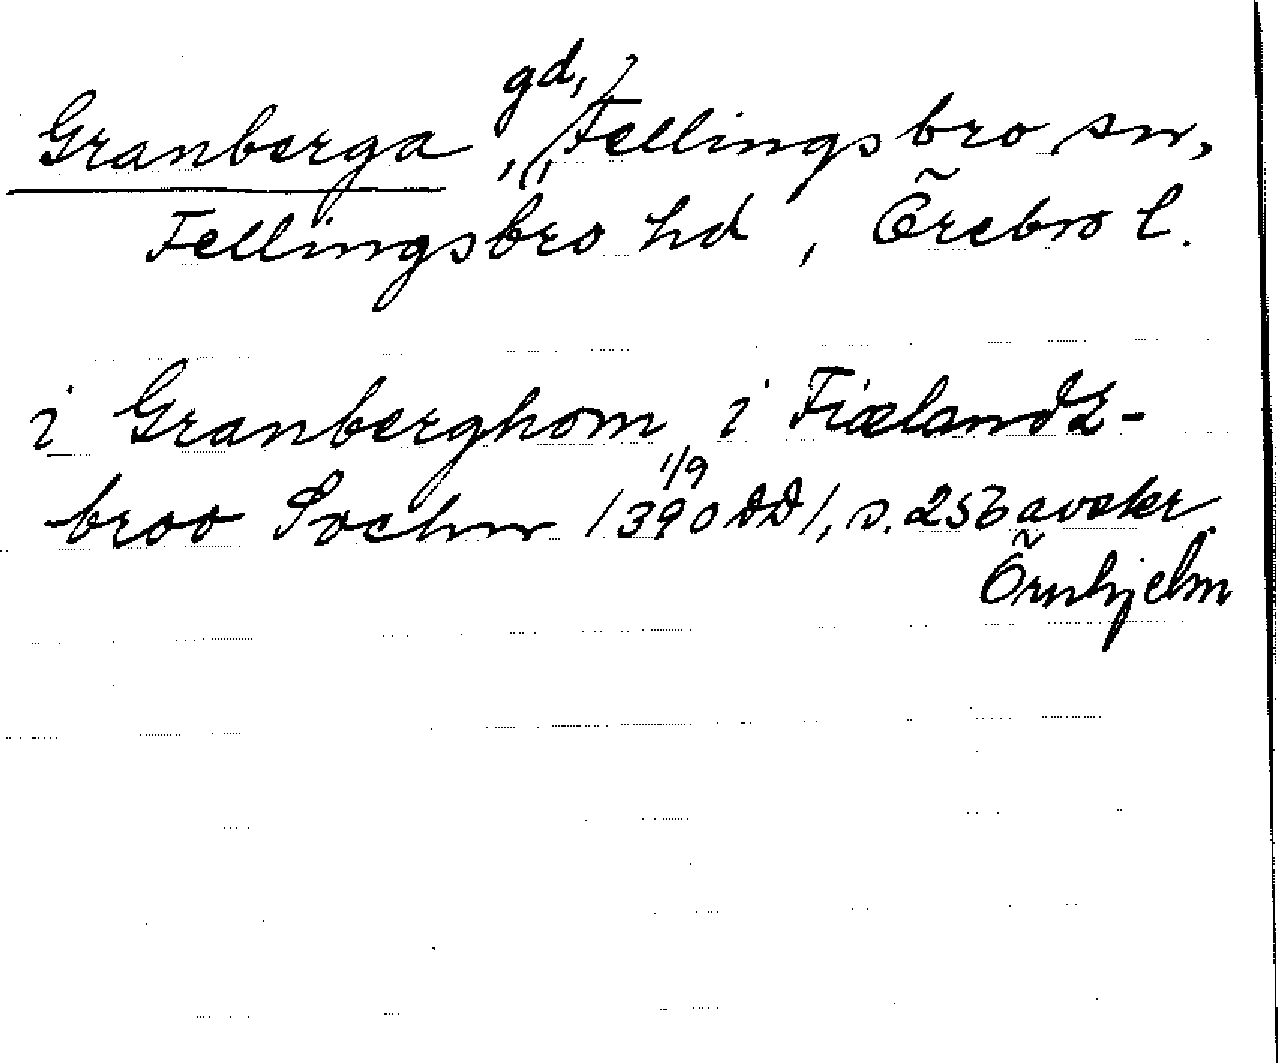 Granberga, gd, i Fellingsbro sn,
Fellingsbro hd, Örebro l.
i Granberghom i Fiælandz-
broo Sochn /390 1/9 DD/, s. 256 avskr.
Örnhjelm